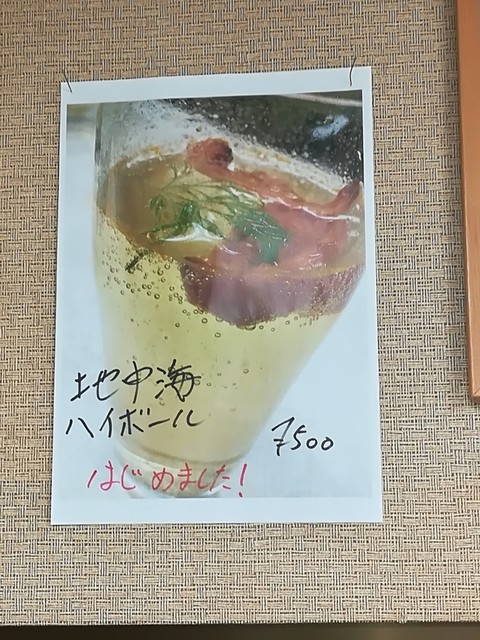 地中海
ハイボール
7500
はじめました!